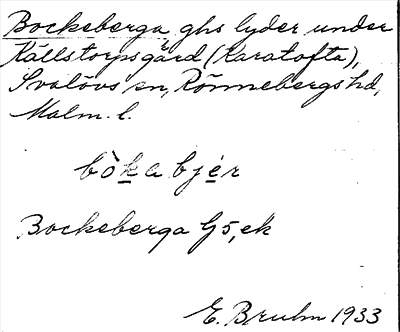 Bockeberga, ghs lyder under
Källstorpsgård (Karatofta),
Svalövs sn, Rönnebergs hd,
Malm. l.
bò̀ka bjér
Bockeberga G5, ek
E. Bruhn 1933